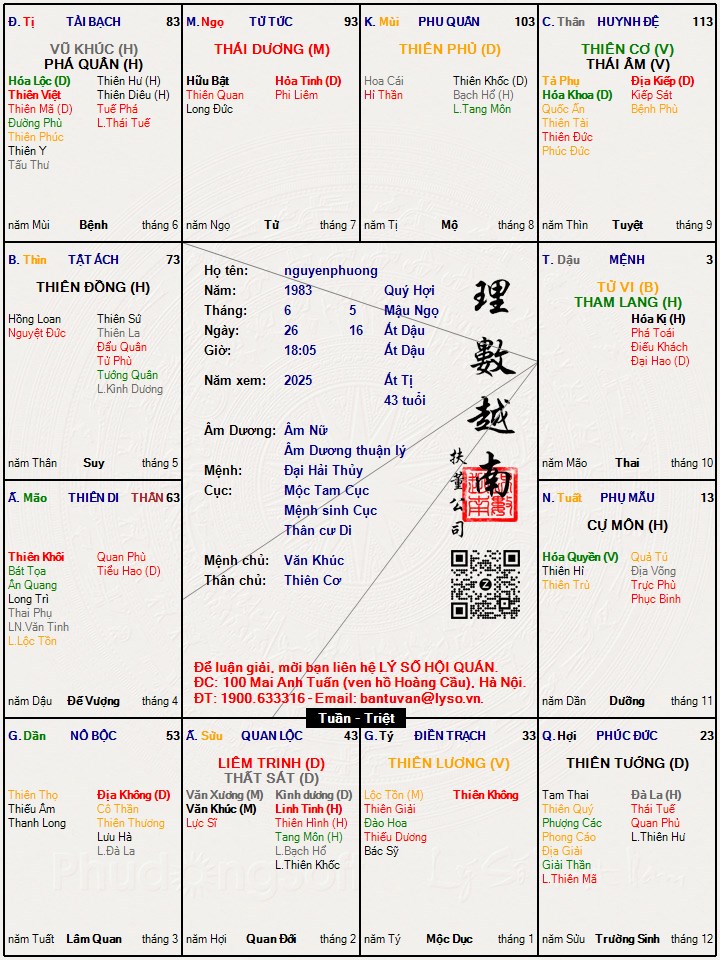 Đ. Tị TÀI BẠCH 83
VŨ KHÚC (H)
PHÁ QUÂN (H)
Hóa Lộc (D) Thiên Hư (H)
Thiên Việt Thiên Diêu (H)
Thiên Mã (D) Tuế Phá
Đường Phù L.Thái Tuế
Thiên Phúc
Thiên Y
Tấu Thư
năm Mùi Bệnh tháng 6
M. Ngọ TỬ TỨC 93
THÁI DƯƠNG (M)
Hữu Bật Hỏa Tinh (D)
Thiên Quan Phi Liêm
Long Đức
năm Ngọ Tử tháng 7
K. Mùi PHU QUÂN 103
THIÊN PHỦ (D)
Hoa Cái Thiên Khốc (D)
Hỉ Thần Bạch Hổ (H)
L.Tang Môn
năm Tị Mộ tháng 8
C. Thân HUYNH ĐỆ 113
THIÊN CƠ (V)
THÁI ÂM (V)
Tả Phụ Địa Kiếp (D)
Hóa Khoa (D) Kiếp Sát
Quốc Ấn Bệnh Phù
Thiên Tài
Thiên Đức
Phúc Đức
năm Thìn Tuyệt tháng 9
B. Thìn TẬT ÁCH 73
THIÊN ĐỒNG (H)
Hồng Loan Thiên Sứ
Nguyệt Đức Thiên La
Đẩu Quân
Tử Phù
Tướng Quân
L.Kình Dương
năm Thân Suy tháng 5
Họ tên: nguyenphuong
Năm: 1983 Quý Hợi
Tháng: 6 5 Mậu Ngọ
Ngày: 26 16 Ất Dậu
Giờ: 18:05 Ất Dậu
Năm xem: 2025 Ất Tị
43 tuổi
Âm Dương: Âm Nữ
Âm Dương thuận lý
Mệnh: Đại Hải Thủy
Cục: Mộc Tam Cục
Mệnh sinh Cục
Thân cư Di
Mệnh chủ: Văn Khúc
Thân chủ: Thiên Cơ
理數越南
扶董公司
Để luận giải, mời bạn liên hệ LÝ SỐ HỘI QUÁN.
ĐC: 100 Mai Anh Tuấn (ven hồ Hoàng Cầu), Hà Nội.
ĐT: 1900.633316 - Email: bantuvan@lyso.vn.
T. Dậu MỆNH 3
TỬ VI (B)
THAM LANG (H)
Hóa Kị (H)
Phá Toái
Điếu Khách
Đại Hao (D)
năm Mão Thai tháng 10
Ấ. Mão THIÊN DI THÂN 63
Thiên Khôi Quan Phù
Bát Tọa Tiểu Hao (D)
Ân Quang
Long Trì
Thai Phụ
LN.Văn Tinh
L.Lộc Tồn
năm Dậu Đế Vượng tháng 4
N. Tuất PHỤ MẪU 13
CỰ MÔN (H)
Hóa Quyền (V) Quả Tú
Thiên Hỉ Địa Võng
Thiên Trù Trực Phù
Phục Binh
năm Dần Dưỡng tháng 11
Tuần - Triệt
G. Dần NÔ BỘC 53
Thiên Thọ Địa Không (D)
Thiếu Âm Cô Thần
Thanh Long Thiên Thương
Lưu Hà
L.Đà La
năm Tuất Lâm Quan tháng 3
Ấ. Sửu QUAN LỘC 43
LIÊM TRINH (D)
THẤT SÁT (D)
Văn Xương (M) Kình dương (D)
Văn Khúc (M) Linh Tinh (H)
Lực Sĩ Thiên Hình (H)
Tang Môn (H)
L.Bạch Hổ
L.Thiên Khốc
năm Hợi Quan Đới tháng 2
G. Tý ĐIỀN TRẠCH 33
THIÊN LƯƠNG (V)
Lộc Tồn (M) Thiên Không
Thiên Giải
Đào Hoa
Thiếu Dương
Bác Sỹ
năm Tý Mộc Dục tháng 1
Q. Hợi PHÚC ĐỨC 23
THIÊN TƯỚNG (D)
Tam Thai Đà La (H)
Thiên Quý Thái Tuế
Phượng Các Quan Phủ
Phong Cáo L.Thiên Hư
Địa Giải
Giải Thần
L.Thiên Mã
năm Sửu Trường Sinh tháng 12